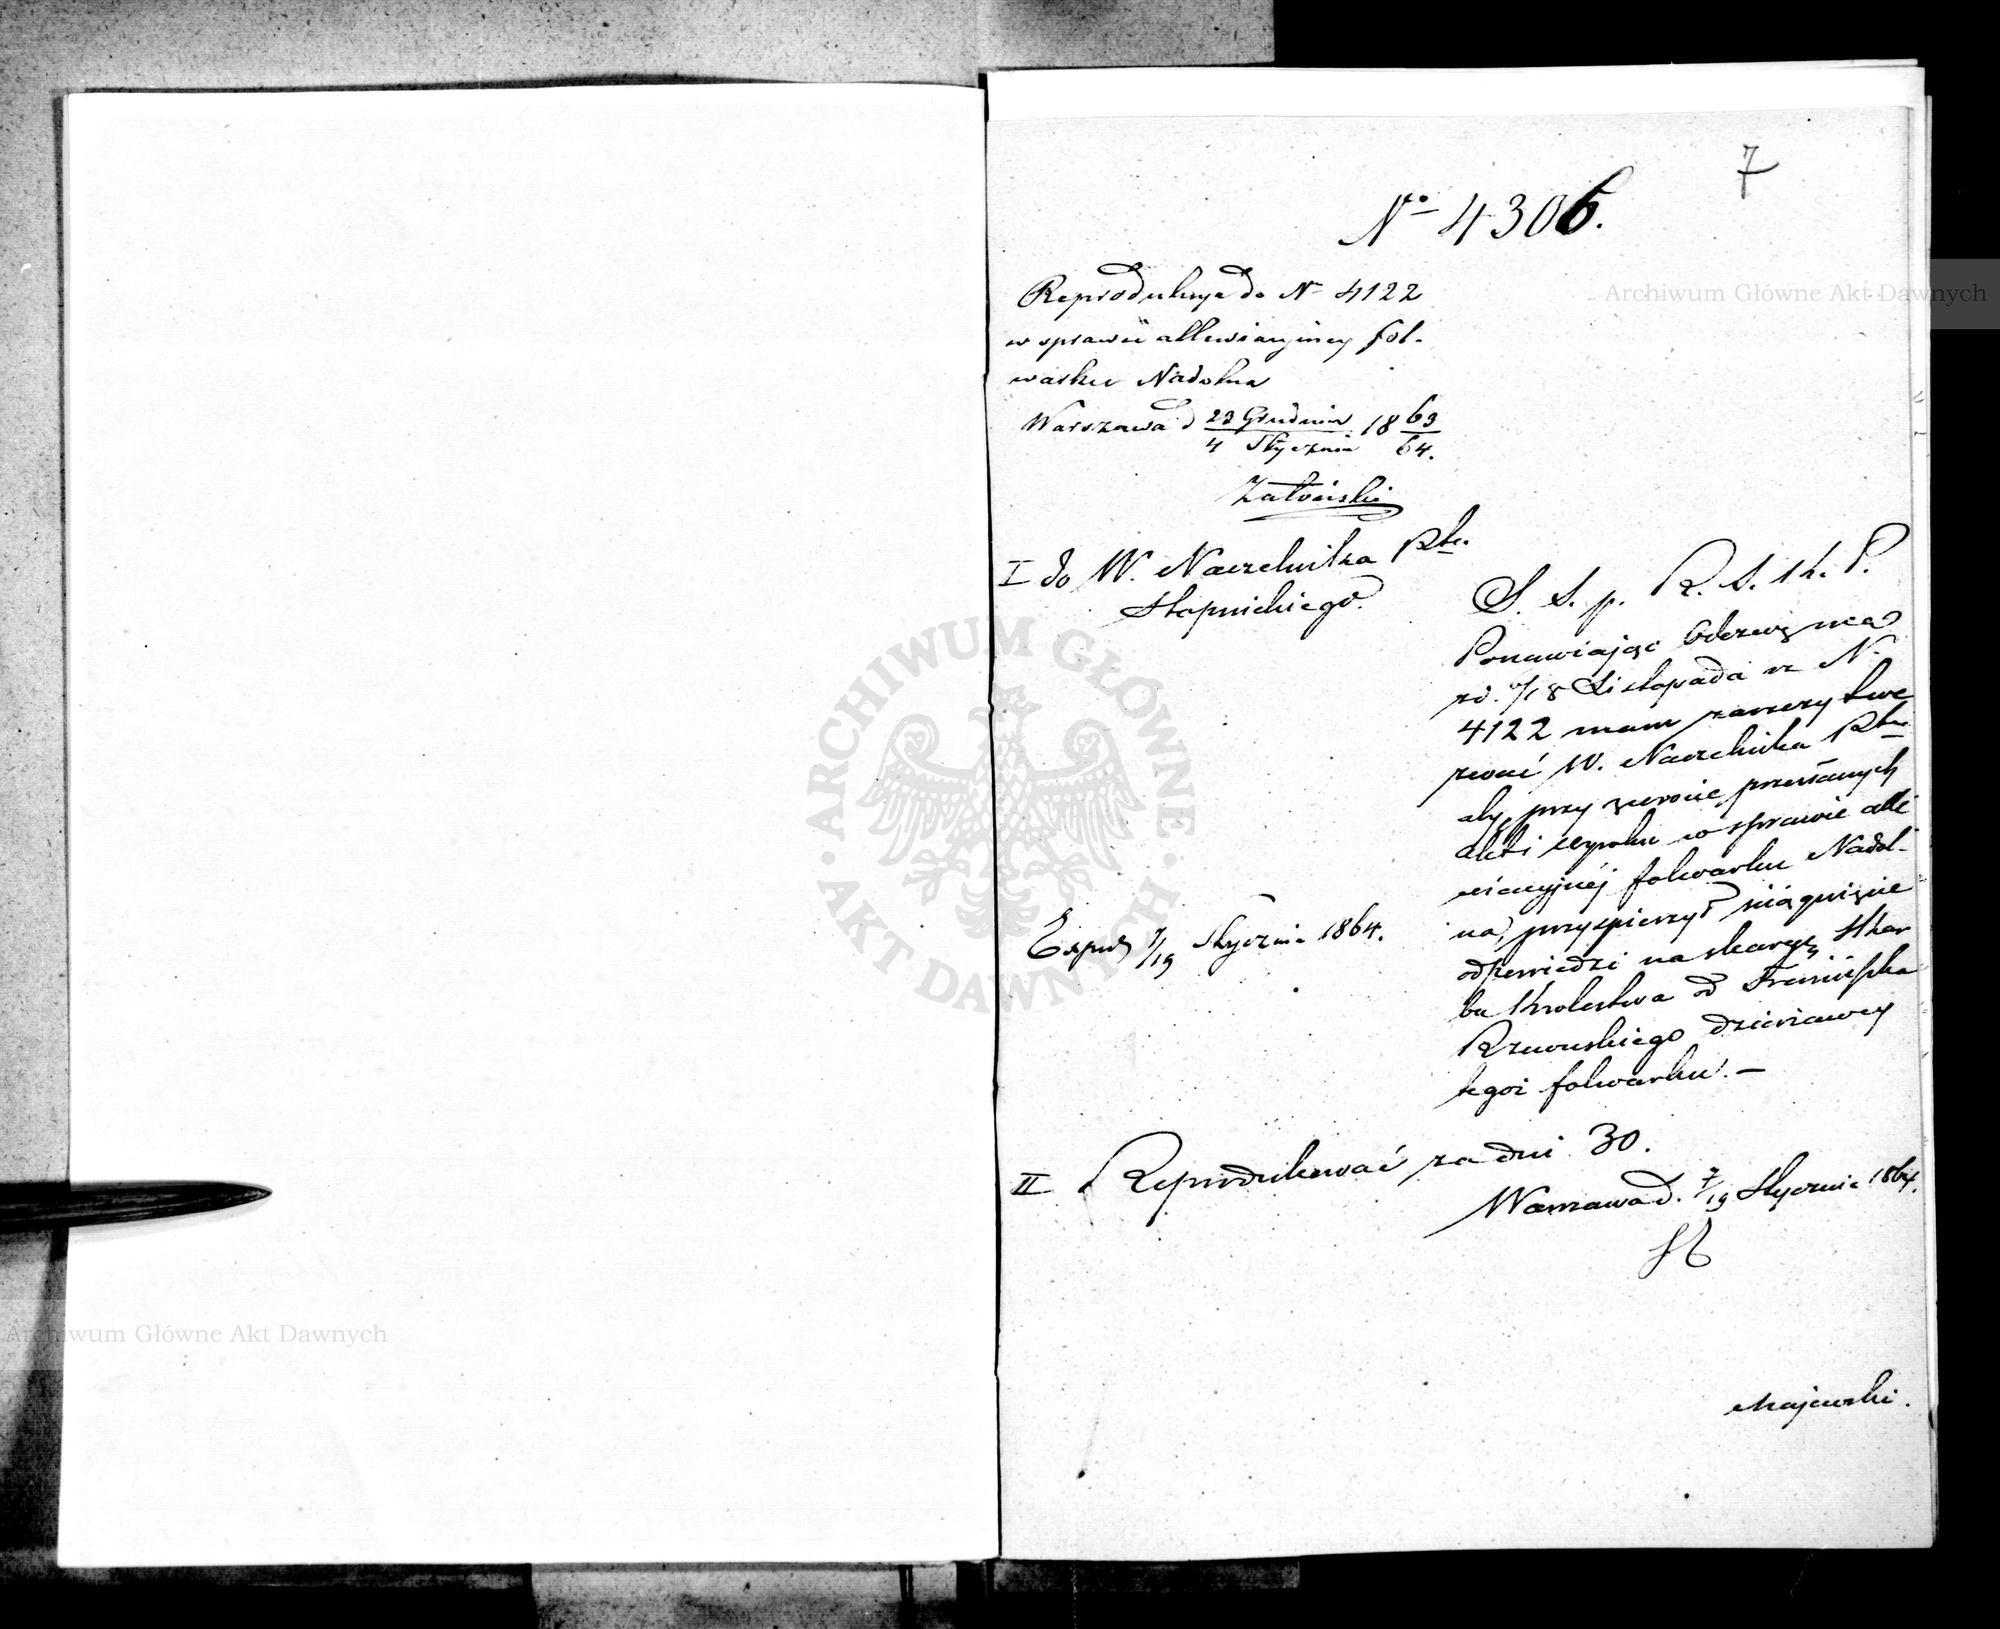 7
No 4306.
Reprodukcya do N 4122
w sprawie allewiacyjney fol-
warku Nadolna
Warszawa d 23 Grudnia / 4 Stycznia 18 63/64.
I do W. Naczelnika Ptu
Stopnickiego.
S. S. p. K. S. K. P.
Ponawiając Odezwę mą
zd. 6/18 Listopada r N.
4122 mam zaszczyt we
zwać W. Naczelnika Ptu
aby przy zwrocie przesłanych
akt i wyroku w sprawie alle
wiacyjnéj folwarku Nadol-
na, przyspieszył ściągnięcie
odpowiedzi na skargę Skar
bu Królestwa od Franciszka
Rzewuskiego dzierżawcy
tegoż folwarku. —
Exped 7/19 Stycznia 1864.
II Reprodukować za dni 30.
Warszawa d. 7/19 Stycznia 1864.
Majewski.
Archiwum Główne Akt Dawnych
Archiwum Główne Akt Dawnych
ARCHIWUM GŁÓWNE · AKT DAWNYCH ·